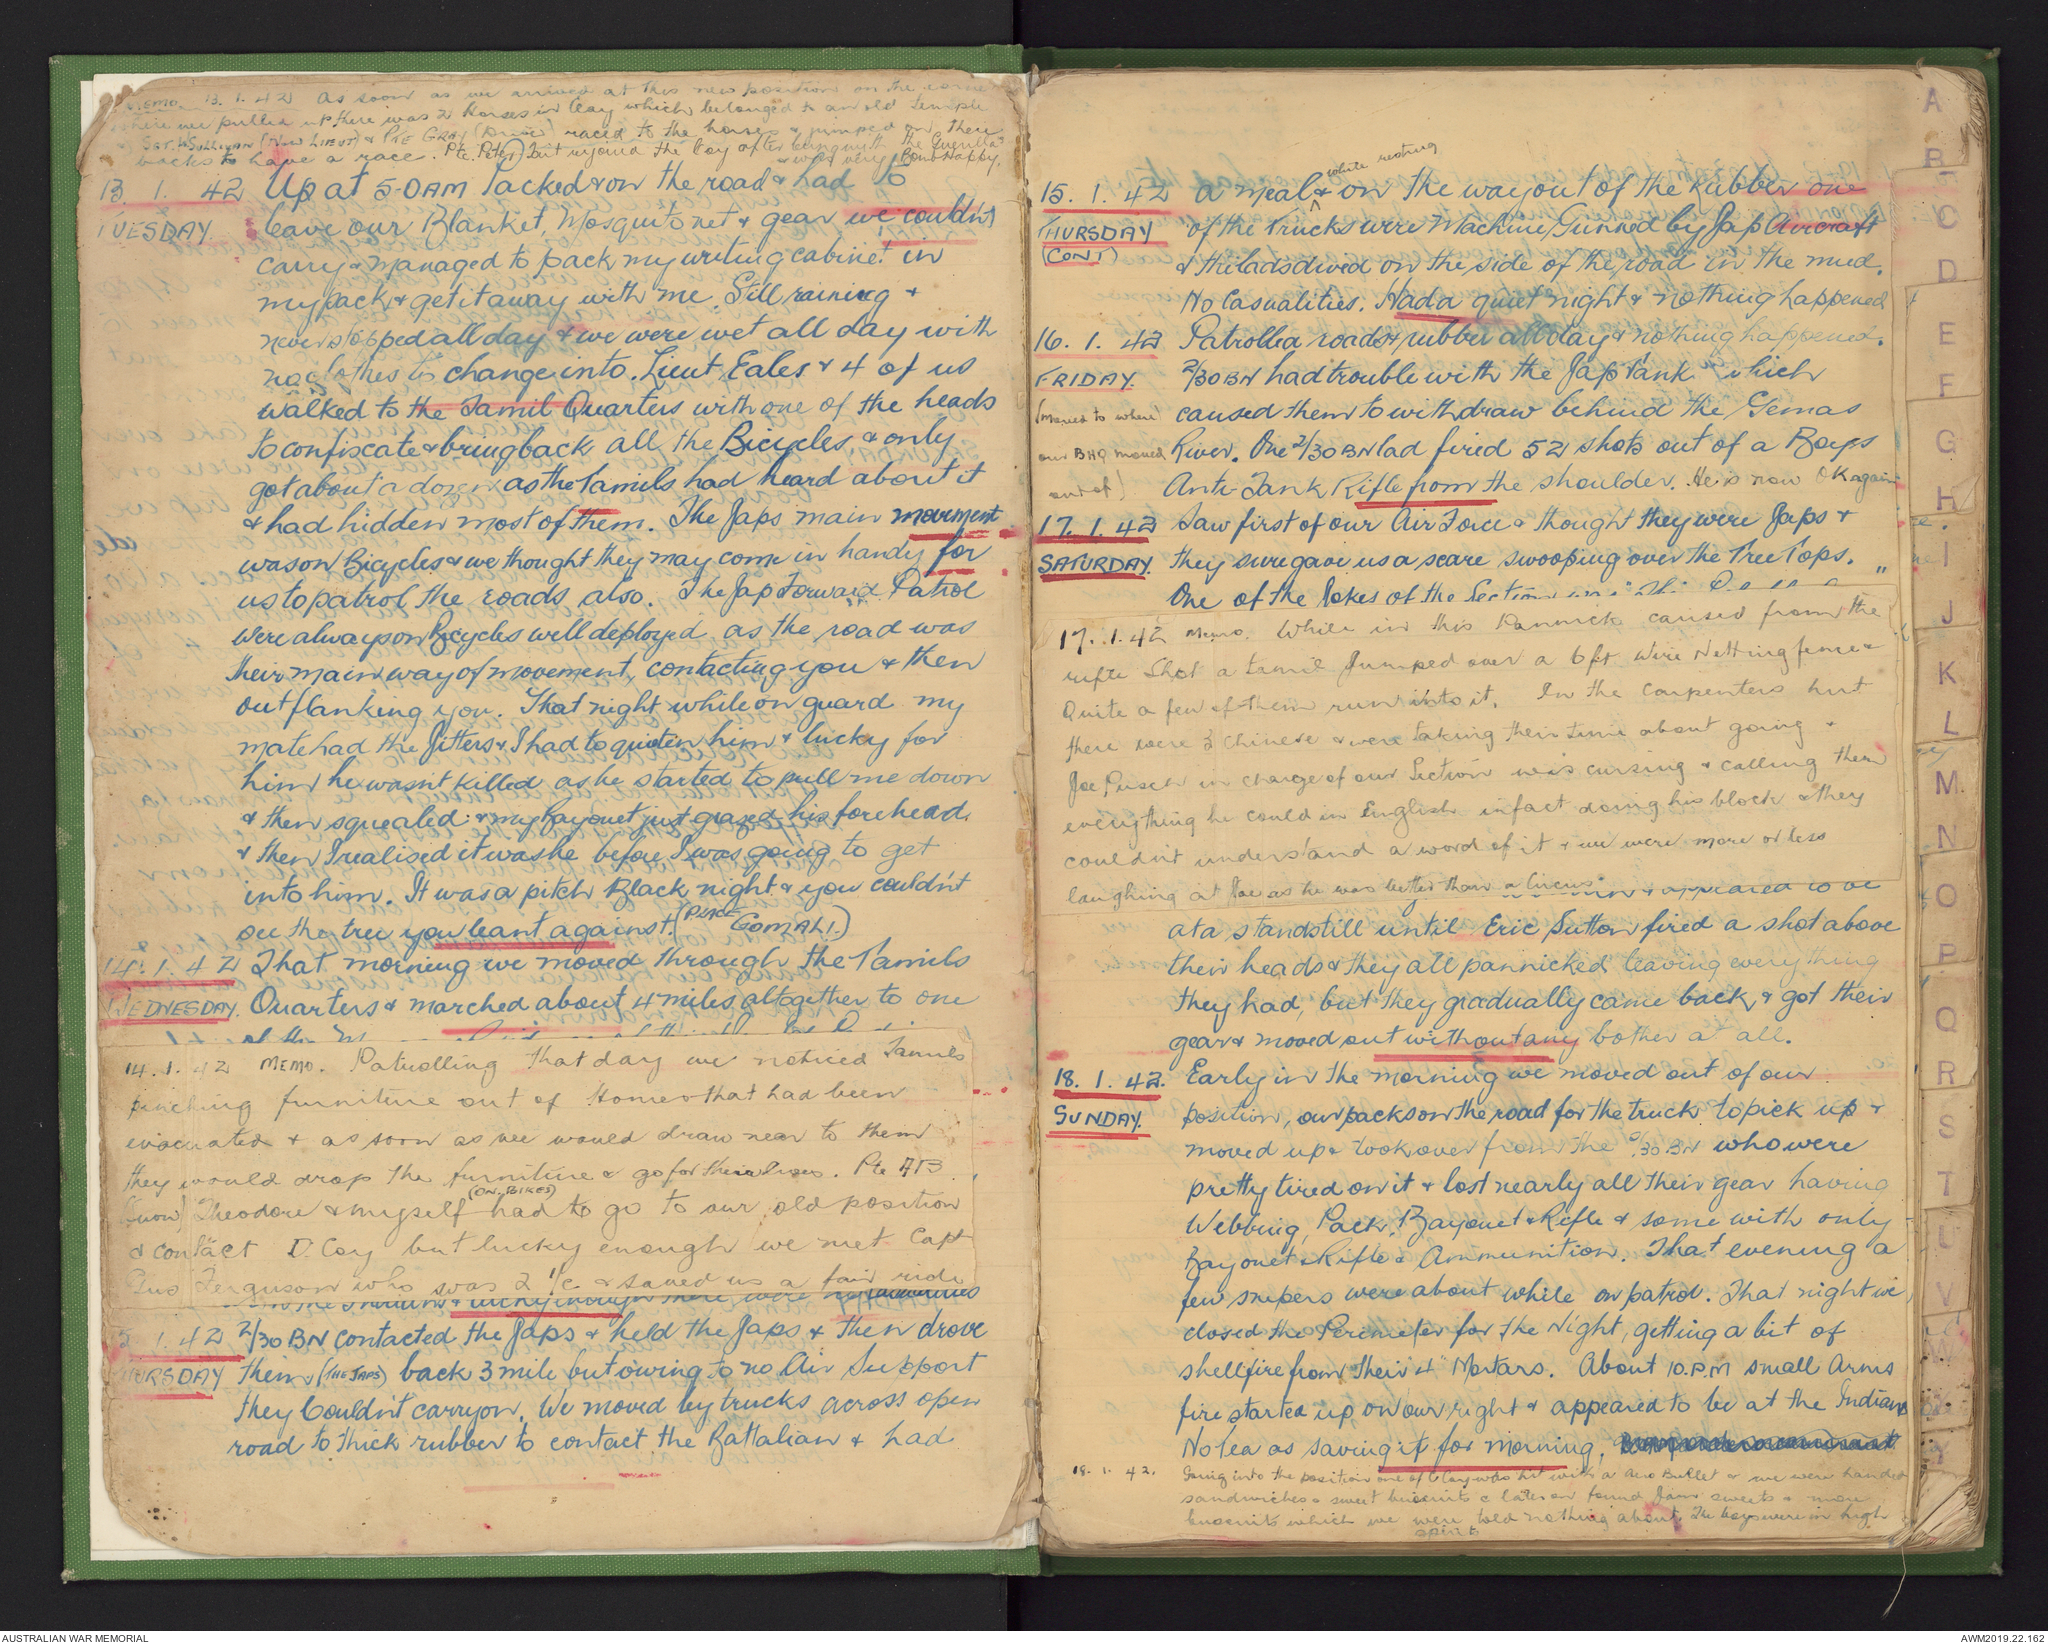 MEMO. 13.1.42 As soon as we arrived at this new position on the corner
where we pulled up there was 2 Horses in Coy which belonged to an old temple
Sgt. O'Sullivan (Now Lieut) & Pte Gray (Driver) raced to the horses & jumped on there
backs to have a race. Pte. Peter Tait rejoined the Coy after being with the Guerilla's
& was very Bomb Happy.
13. 1. 42 Up at 5-0AM Packed & on the road & had to
TUESDAY. leave our Blanket, Mosquito net & gear we couldn't
carry & managed to pack my writing cabinet in
my pack & get it away with me. Still raining &
never stopped all day & we were wet all day with
no clothes to change into. Lieut Eales & 4 of us
walked to the Tamil Quarters with one of the heads
to confiscate & bring back all the Bicycles, & only
got about a dozen as the Tamils had heard about it
& had hidden most of them. The Japs main movement
was on Bicycles & we thought they may come in handy for
us to patrol the roads also. The Jap Forward Patrol
were always on Bicycles well deployed as the road was
their main way of movement, contacting you & then
outflanking you. That night while on guard my
mate had the Jitters & I had to quieten him & lucky for
him he wasn't killed as he started to pull me down
& then squealed & my Bayonet just grazed his forehead.
& then I realised it was he before I was going to get
into him. It was a pitch Black night & you couldn't
see the tree you leant against. (Place GOMALI.)
14. 1. 42 That morning we moved through the Tamils
WEDNESDAY. Quarters & marched about 4 miles altogether to one
14. 1. 42 MEMO. Patrolling that day we noticed Tamils
pinching furniture out of Homes that had been
evacuated & as soon as we would draw near to them
they would drop the furniture & go for their lives. Pte AB
(Snow) Theodore & myself (ON BIKES) had to go to our old position
& contact D. Coy but lucky enough we met Capt
Gus Ferguson who was 2 I/C. & saved us a fair ride
& lucky enough there were no casualties
15. 1. 42 2/30 BN contacted the Japs & held the Japs & then drove
THURSDAY them (THE JAPS) back 3 mile but owing to no Air Support
they Couldn't carry on. We moved by trucks across open
road to thick rubber to contact the Battalian & had
15. 1. 42 a meal & while resting on the way out of the Rubber one
THURSDAY of the Trucks were Machine Gunned by Jap Aircraft
(CONT) & the lads dived on the side of the road in the mud.
No Casualities. Had a quiet night & nothing happened
16. 1. 42 Patrolled roads & rubber all day & nothing happened.
FRIDAY. 2/30 BN had trouble with the Jap Tank which
(Moved to where caused them to withdraw behind the Gemas
our BHQ moved River. One 2/30 BN lad fired 52 shots out of a Boys
out of) Anti-Tank Rifle from the shoulder. He is now OK again
17. 1. 42 Saw first of our Air Force & thought they were Japs &
SATURDAY. they sure gave us a scare swooping over the Tree Tops.
One of the Jokes of the Section was
17. 1. 42 Memo. While in this Pannick caused from the
rifle shot a tamil Jumped over a 6ft Wire Netting fence &
Quite a few of them run into it. In the Carpenters hut
there were 3 Chinese & were taking their time about going &
Joe Pusch in charge of our Section was cursing & calling them
everything he could in English infact doing his block & they
couldn't understand a word of it & we were more or less
laughing at Joe as he was better than a Circus.
& appeared to be
at a standstill until Eric Sutton fired a shot above
their heads & they all pannicked leaving everything
they had, but they gradually came back & got their
gear & moved out without any bother at all.
18. 1. 42. Early in the morning we moved out of our
SUNDAY. position, our packs on the road for the truck to pick up &
moved up & took over from the 2/30 BN who were
pretty tired on it & lost nearly all their gear having
Webbing, Pack, Bayonet & Rifle & some with only
Bayonet & Rifle & Ammunition. That evening a
few snipers were about while on patrol. That night we
closed the Perimeter for the Night, getting a bit of
shellfire from their 4" Mortars. About 10.P.M small Arms
fire started up on our right & appeared to be at the Indians
No tea as saving it for morning.
18. 1. 42. Going into the position one of C Coy was hit with a Aero Bullet & we were handed
sandwiches & sweet biscuits & later on found Jam sweets & more
biscuits which we were told nothing about. The boys were in high
spirits
A
B
C
D
E
F
G
H
I
J
K
L
M
N
O
P
Q
R
S
T
U
V
W
Y
AUSTRALIAN WAR MEMORIAL
AWM2019.22.162